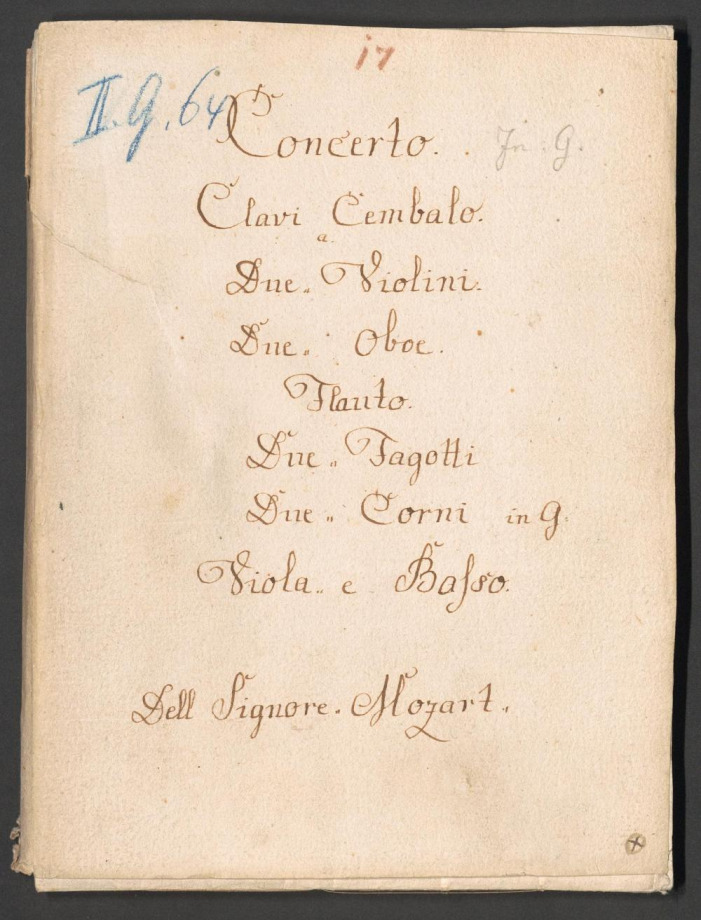 17
II. G. 64
Concerto. . In. G.
Clavi Cembalo.
a.
Due. Violini.
Due. Oboe.
Flauto.
Due. Fagotti
Due. Corni in G.
Viola. e Baſso.
Dell Signore. Mozart.